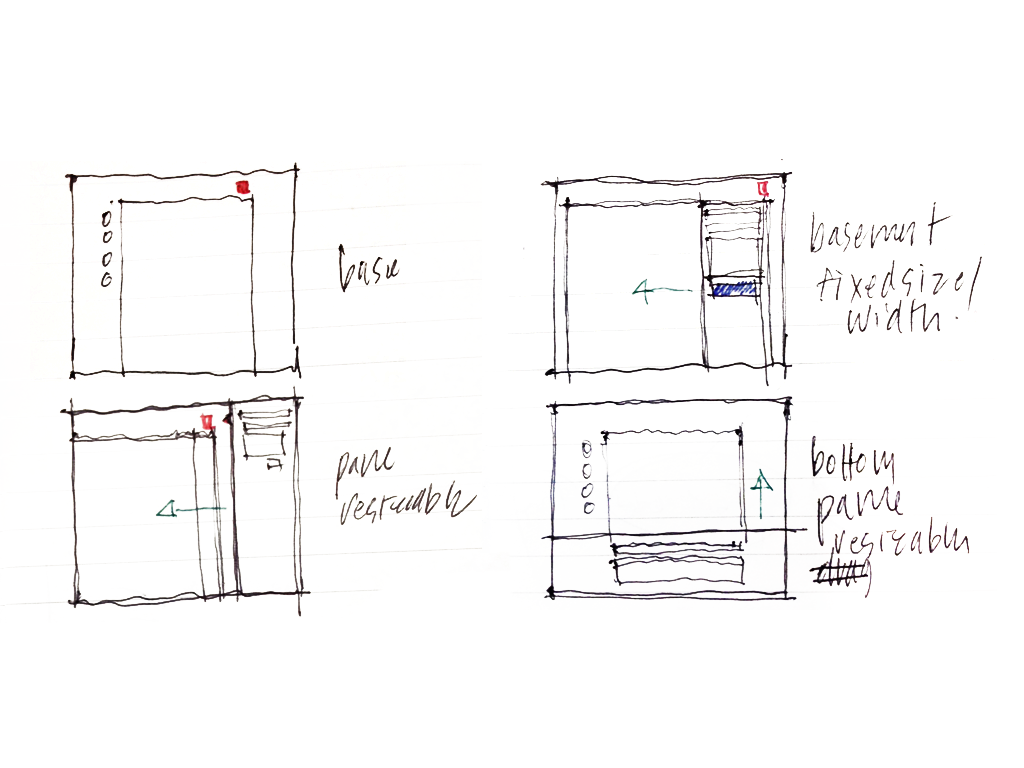 base
basement
fixed size/
width.
pane
resizeable
bottom
pane
resizable